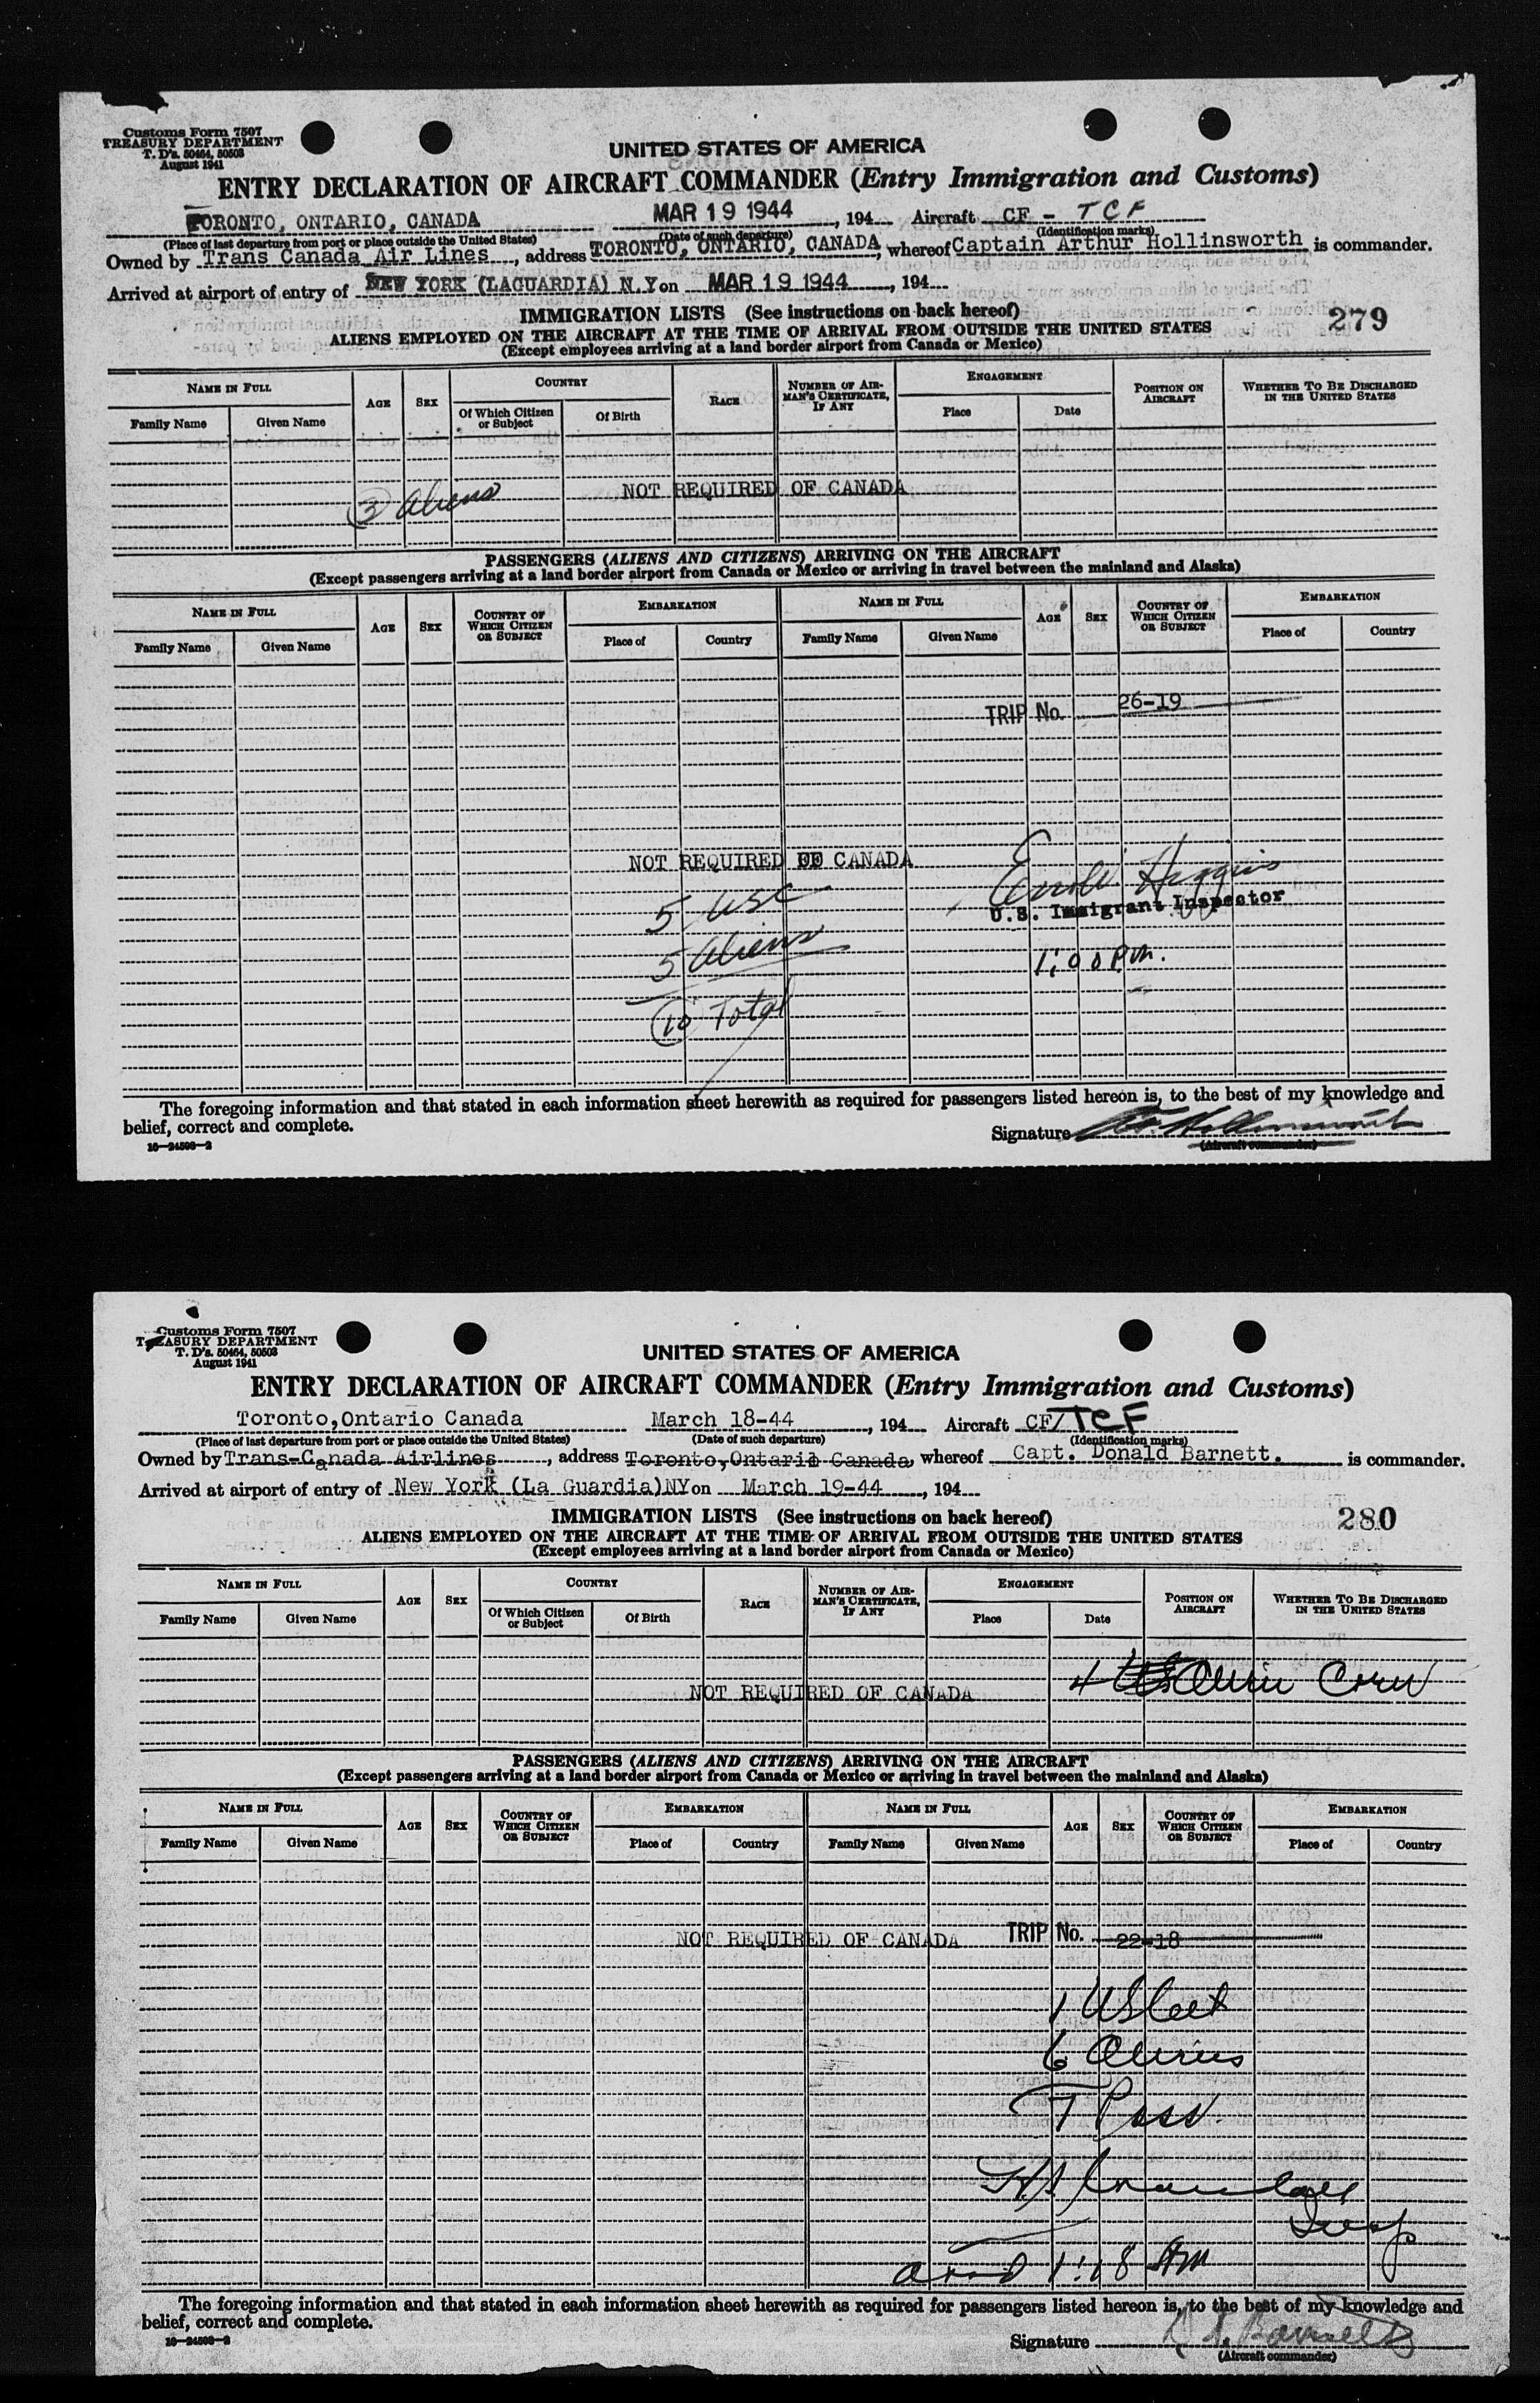 Customs Form 7507
TREASURY DEPARTMENT
T. D's. 50464, 50503
August 1941
UNITED STATES OF AMERICA
ENTRY DECLARATION OF AIRCRAFT COMMANDER (Entry Immigration and Customs)
TORONTO, ONTARIO, CANADA MAR 19 1944, 194 Aircraft CF - TCF
(Place of last departure from port or place outside the United States) (Date of such departure) (Identification marks)
Owned by Trans Canada Air Lines, address TORONTO, ONTARIO, CANADA, whereof Captain Arthur Hollinsworth is commander.
Arrived at airport of entry of NEW YORK (LAGUARDIA) N.Y on MAR 19 1944, 194
IMMIGRATION LISTS (See instructions on back hereof)
279
ALIENS EMPLOYED ON THE AIRCRAFT AT THE TIME OF ARRIVAL FROM OUTSIDE THE UNITED STATES
(Except employees arriving at a land border airport from Canada or Mexico)
NAME IN FULL AGE SEX COUNTRY RACE NUMBER OF AIRMAN'S CERTIFICATE, IF ANY ENGAGEMENT POSITION ON AIRCRAFT WHETHER TO BE DISCHARGED IN THE UNITED STATES
Family Name Given Name Of Which Citizen or Subject Of Birth Place Date
NOT REQUIRED OF CANADA
3 Aliens
PASSENGERS (ALIENS AND CITIZENS) ARRIVING ON THE AIRCRAFT
(Except passengers arriving at a land border airport from Canada or Mexico or arriving in travel between the mainland and Alaska)
NAME IN FULL AGE SEX COUNTRY OF WHICH CITIZEN OR SUBJECT EMBARKATION NAME IN FULL AGE SEX COUNTRY OF WHICH CITIZEN OR SUBJECT EMBARKATION
Family Name Given Name Place of Country Family Name Given Name Place of Country
TRIP No. 26-19
NOT REQUIRED OF CANADA
5 USC
Higgins
U.S. Immigrant Inspector
5 Aliens
1:00 P.m.
10 Total
The foregoing information and that stated in each information sheet herewith as required for passengers listed hereon is, to the best of my knowledge and
belief, correct and complete.
Signature Hollinsworth
(Aircraft commander)
16-24598-2
Customs Form 7507
TREASURY DEPARTMENT
T. D's. 50464, 50503
August 1941
UNITED STATES OF AMERICA
ENTRY DECLARATION OF AIRCRAFT COMMANDER (Entry Immigration and Customs)
Toronto,Ontario Canada March 18-44, 194 Aircraft CF/TCF
(Place of last departure from port or place outside the United States) (Date of such departure) (Identification marks)
Owned by Trans-Canada Airlines, address Toronto,Ontario Canada, whereof Capt. Donald Barnett. is commander.
Arrived at airport of entry of New York (La Guardia)NY on March 19-44, 194
IMMIGRATION LISTS (See instructions on back hereof)
280
ALIENS EMPLOYED ON THE AIRCRAFT AT THE TIME OF ARRIVAL FROM OUTSIDE THE UNITED STATES
(Except employees arriving at a land border airport from Canada or Mexico)
NAME IN FULL AGE SEX COUNTRY RACE NUMBER OF AIRMAN'S CERTIFICATE, IF ANY ENGAGEMENT POSITION ON AIRCRAFT WHETHER TO BE DISCHARGED IN THE UNITED STATES
Family Name Given Name Of Which Citizen or Subject Of Birth Place Date
4 Alien Crew
NOT REQUIRED OF CANADA
PASSENGERS (ALIENS AND CITIZENS) ARRIVING ON THE AIRCRAFT
(Except passengers arriving at a land border airport from Canada or Mexico or arriving in travel between the mainland and Alaska)
NAME IN FULL AGE SEX COUNTRY OF WHICH CITIZEN OR SUBJECT EMBARKATION NAME IN FULL AGE SEX COUNTRY OF WHICH CITIZEN OR SUBJECT EMBARKATION
Family Name Given Name Place of Country Family Name Given Name Place of Country
NOT REQUIRED OF CANADA TRIP No. 22-18
1 US
6 Aliens
7 Pass.
Insp
1:18 AM
The foregoing information and that stated in each information sheet herewith as required for passengers listed hereon is, to the best of my knowledge and
belief, correct and complete.
Signature Barnett
(Aircraft commander)
16-24598-2